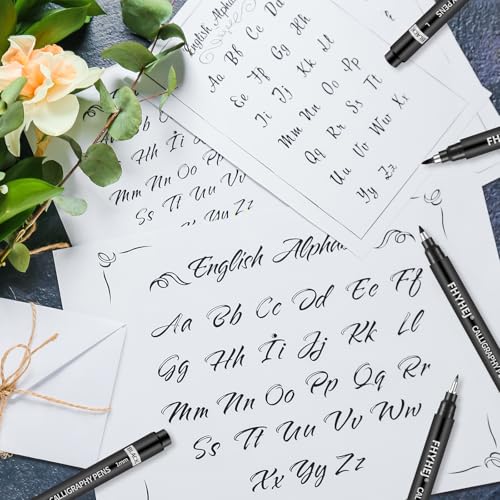 English Alpha
Aa Bb Cc Dd
Ee Ff Gg Hh
Ii Jj Kk Ll
Mm Nn Oo Pp
Qq Rr Ss Tt
Uu Vv Ww Xx
Yy Zz
Hh İi Jj
Mm Nn Oo
Ss Tt Uu Vv
Yy Zz
English Alphab
Aa Bb Cc Dd Ee Ff
Gg Hh İi Jj Kk Ll
Mm Nn Oo Pp Qq Rr
Ss Tt Uu Vv Ww
Xx Yy Zz
PENS
FHYHEJ
FHYHEJ CALLIGRAPHY PEN
FHYHEJ
CALLIGRAPHY PENS 1mm BLACK